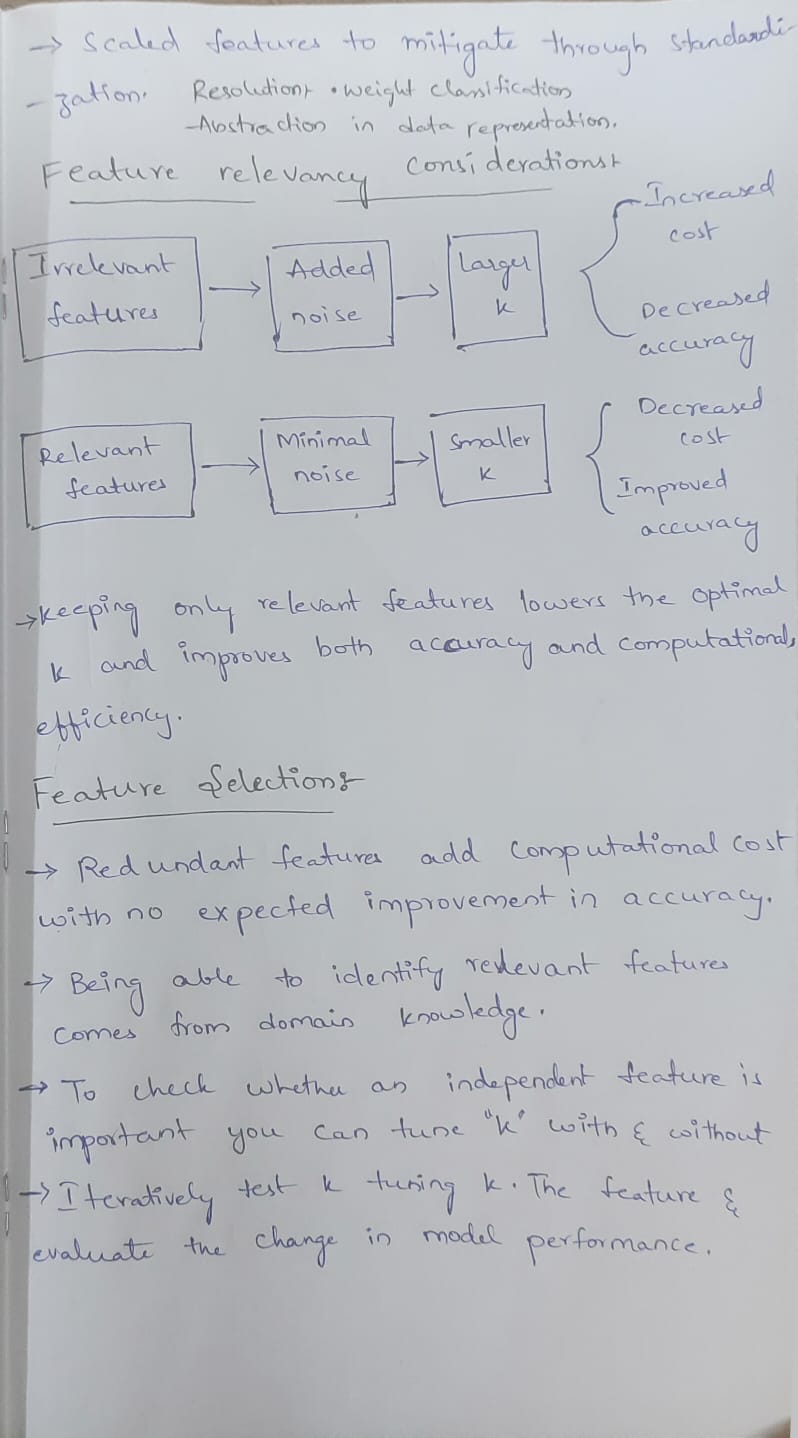 → Scaled features to mitigate through standardi
- zation. Resolution:- • weight classification
-Abstraction in data representation.
Feature relevancy considerations:-
Irrelevant features → Added noise → Larger k { Increased cost
Decreased accuracy
Relevant features → Minimal noise → Smaller k { Decreased cost
Improved accuracy
→ Keeping only relevant features lowers the optimal
k and improves both accuracy and computational
efficiency.
Feature Selection:-
→ Redundant features add computational cost
with no expected improvement in accuracy.
→ Being able to identify relevant features
comes from domain knowledge.
→ To check whether an independent feature is
important you can tune "k" with & without
→ Iteratively test k tuning k. The feature &
evaluate the change in model performance.